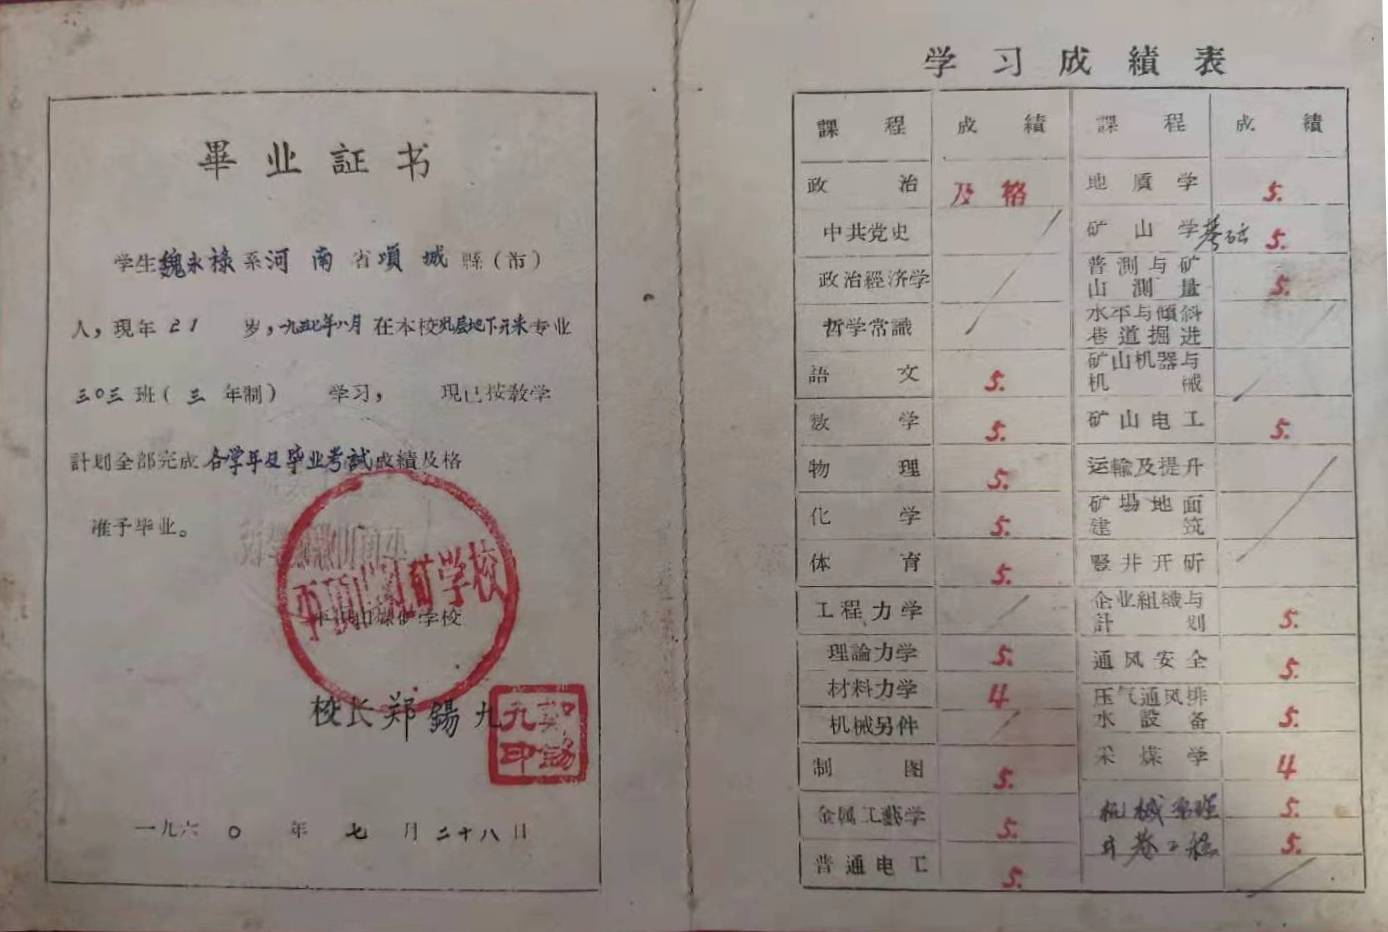 畢业証书
学生魏永禄系河南省項城縣(市)
人，现年21岁，一九五七年八月在本校矿层地下开采专业
三〇三班(三年制)学习，現已按教学
計划全部完成各学年及毕业考試成績及格
准予毕业。
平頂山煤矿学校
平頂山煤矿学校
校长郑錫九
郑錫九印
一九六〇年七月二十八日
学习成績表
課程 成績 課程 成績
政治 及格 地質学 5.
中共党史 矿山学 5.
政治經济学 普測与矿山測量 5.
哲学常識 水平与傾斜巷道掘进
語文 5. 矿山机器与机械
数学 5. 矿山电工 5.
物理 5. 运輸及提升
化学 5. 矿場地面建筑
体育 5. 竪井开斫
工程力学 企业組織与計划 5.
理論力学 5. 通风安全 5.
材料力学 4 压气通风排水設备 5.
机械另件 采煤学 4
制图 5. 机械 5.
金属工藝学 5. 井巷工程 5.
普通电工 5.